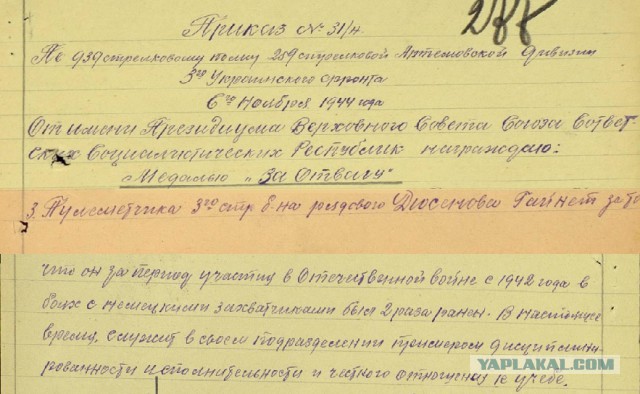 288
Приказ № 31/н
По 939 стрелковому полку 259 стрелковой Артемовской дивизии
3го Украинского фронта
6го Ноября 1944 года
От имени Президиума Верховного Совета Союза Совет-
ских Социалистических Республик награждаю:
Медалью „За Отвагу"
3. Пулеметчика 3го стр б-на рядового Дюсенова Гайнет за то
что он за период участия в Отечественной войне с 1942 года в
боях с немецкими захватчиками был 2 раза ранен. В настоящее
время, служит в своем подразделении примером дисциплини-
рованности исполнительности и честного отношения к учебе.
YAPLAKAL.COM